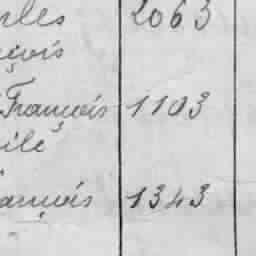 rles 2063
çois
François 1103
ile
ançois 1343